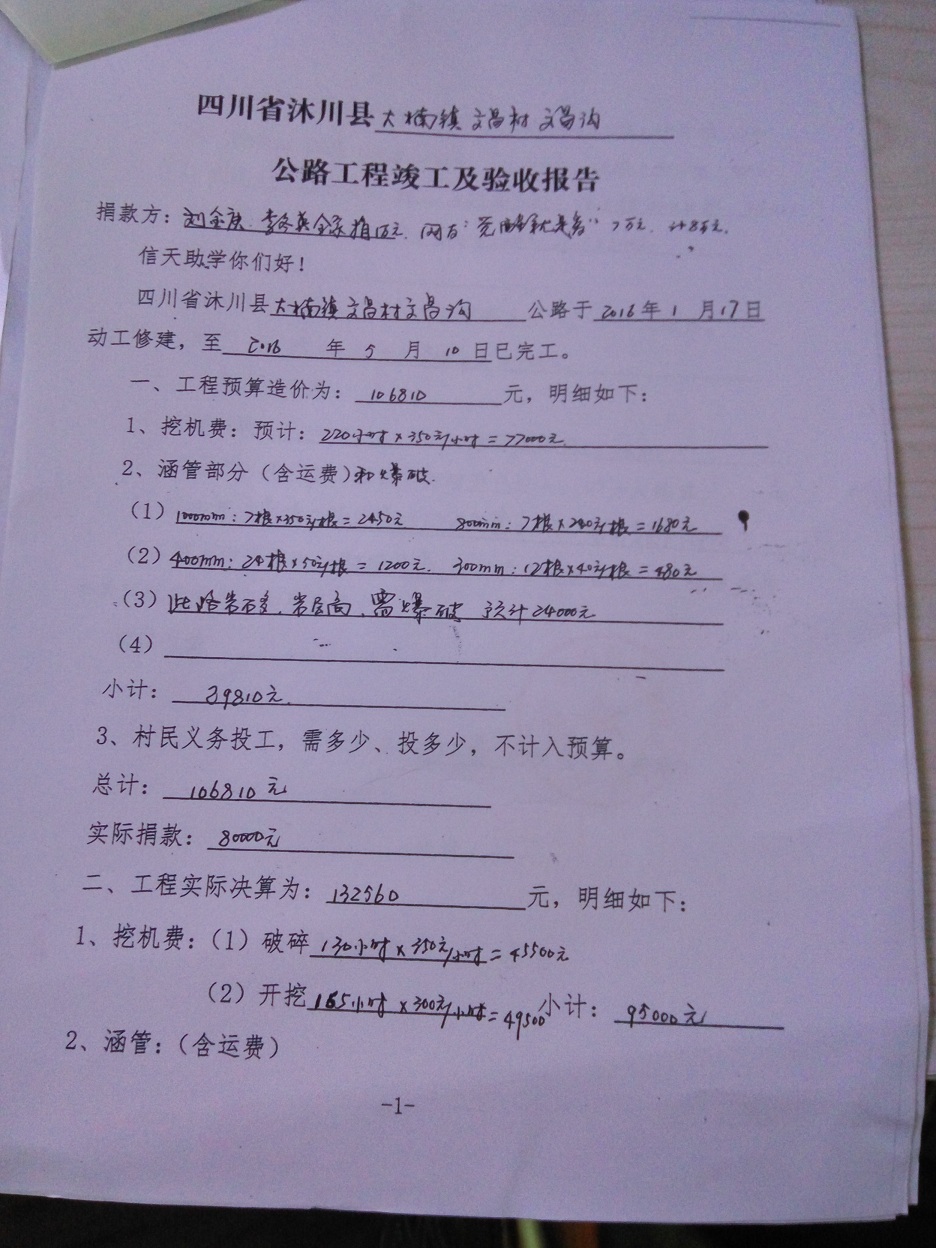 四川省沐川县大楠镇文昌村文昌沟
公路工程竣工及验收报告
捐款方：刘金庚、李冬英全家捐1万元、网友“ ”7万元，计8万元。
信天助学你们好！
四川省沐川县大楠镇文昌村文昌沟 公路于2016年1月17日
动工修建，至2016年5月10日已完工。
一、工程预算造价为：106810元，明细如下：
1、挖机费：预计：220小时×350元/小时=77000元
2、涵管部分（含运费）和爆破.
（1）1000mm：7根×350元/根=2450元 800mm：7根×240元/根=1680元
（2）400mm：24根×50元/根=1200元. 300mm：12根×40元/根=480元
（3）此路岩石多、岩层高、需爆破 预计24000元
（4）
小计：29810元.
3、村民义务投工，需多少、投多少，不计入预算。
总计：106810元
实际捐款：80000元
二、工程实际决算为：132560元，明细如下：
1、挖机费：（1）破碎130小时×350元/小时=45500元
（2）开挖165小时×300元/小时=49500 小计：95000元
2、涵管：（含运费）
-1-